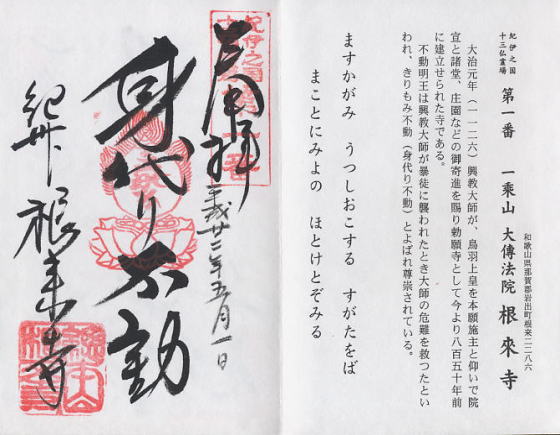 紀伊之国
十三仏霊場
第一番 一乗山 大傳法院 根來寺
和歌山県那賀郡岩出町根来二二八六
大治元年（一一二六）興教大師が、鳥羽上皇を本願施主と仰いで院
宣と諸堂、庄園などの御寄進を賜り勅願寺として今より八百五十年前
に建立せられた寺である。
不動明王は興教大師が暴徒に襲われたとき大師の危難を救つたとい
われ、きりもみ不動（身代り不動）とよばれ尊崇されている。
ますかがみ うつしおこする すがたをば
まことにみよの ほとけとぞみる
奉拝
二年五月一日
身代り不動
紀州 根来寺